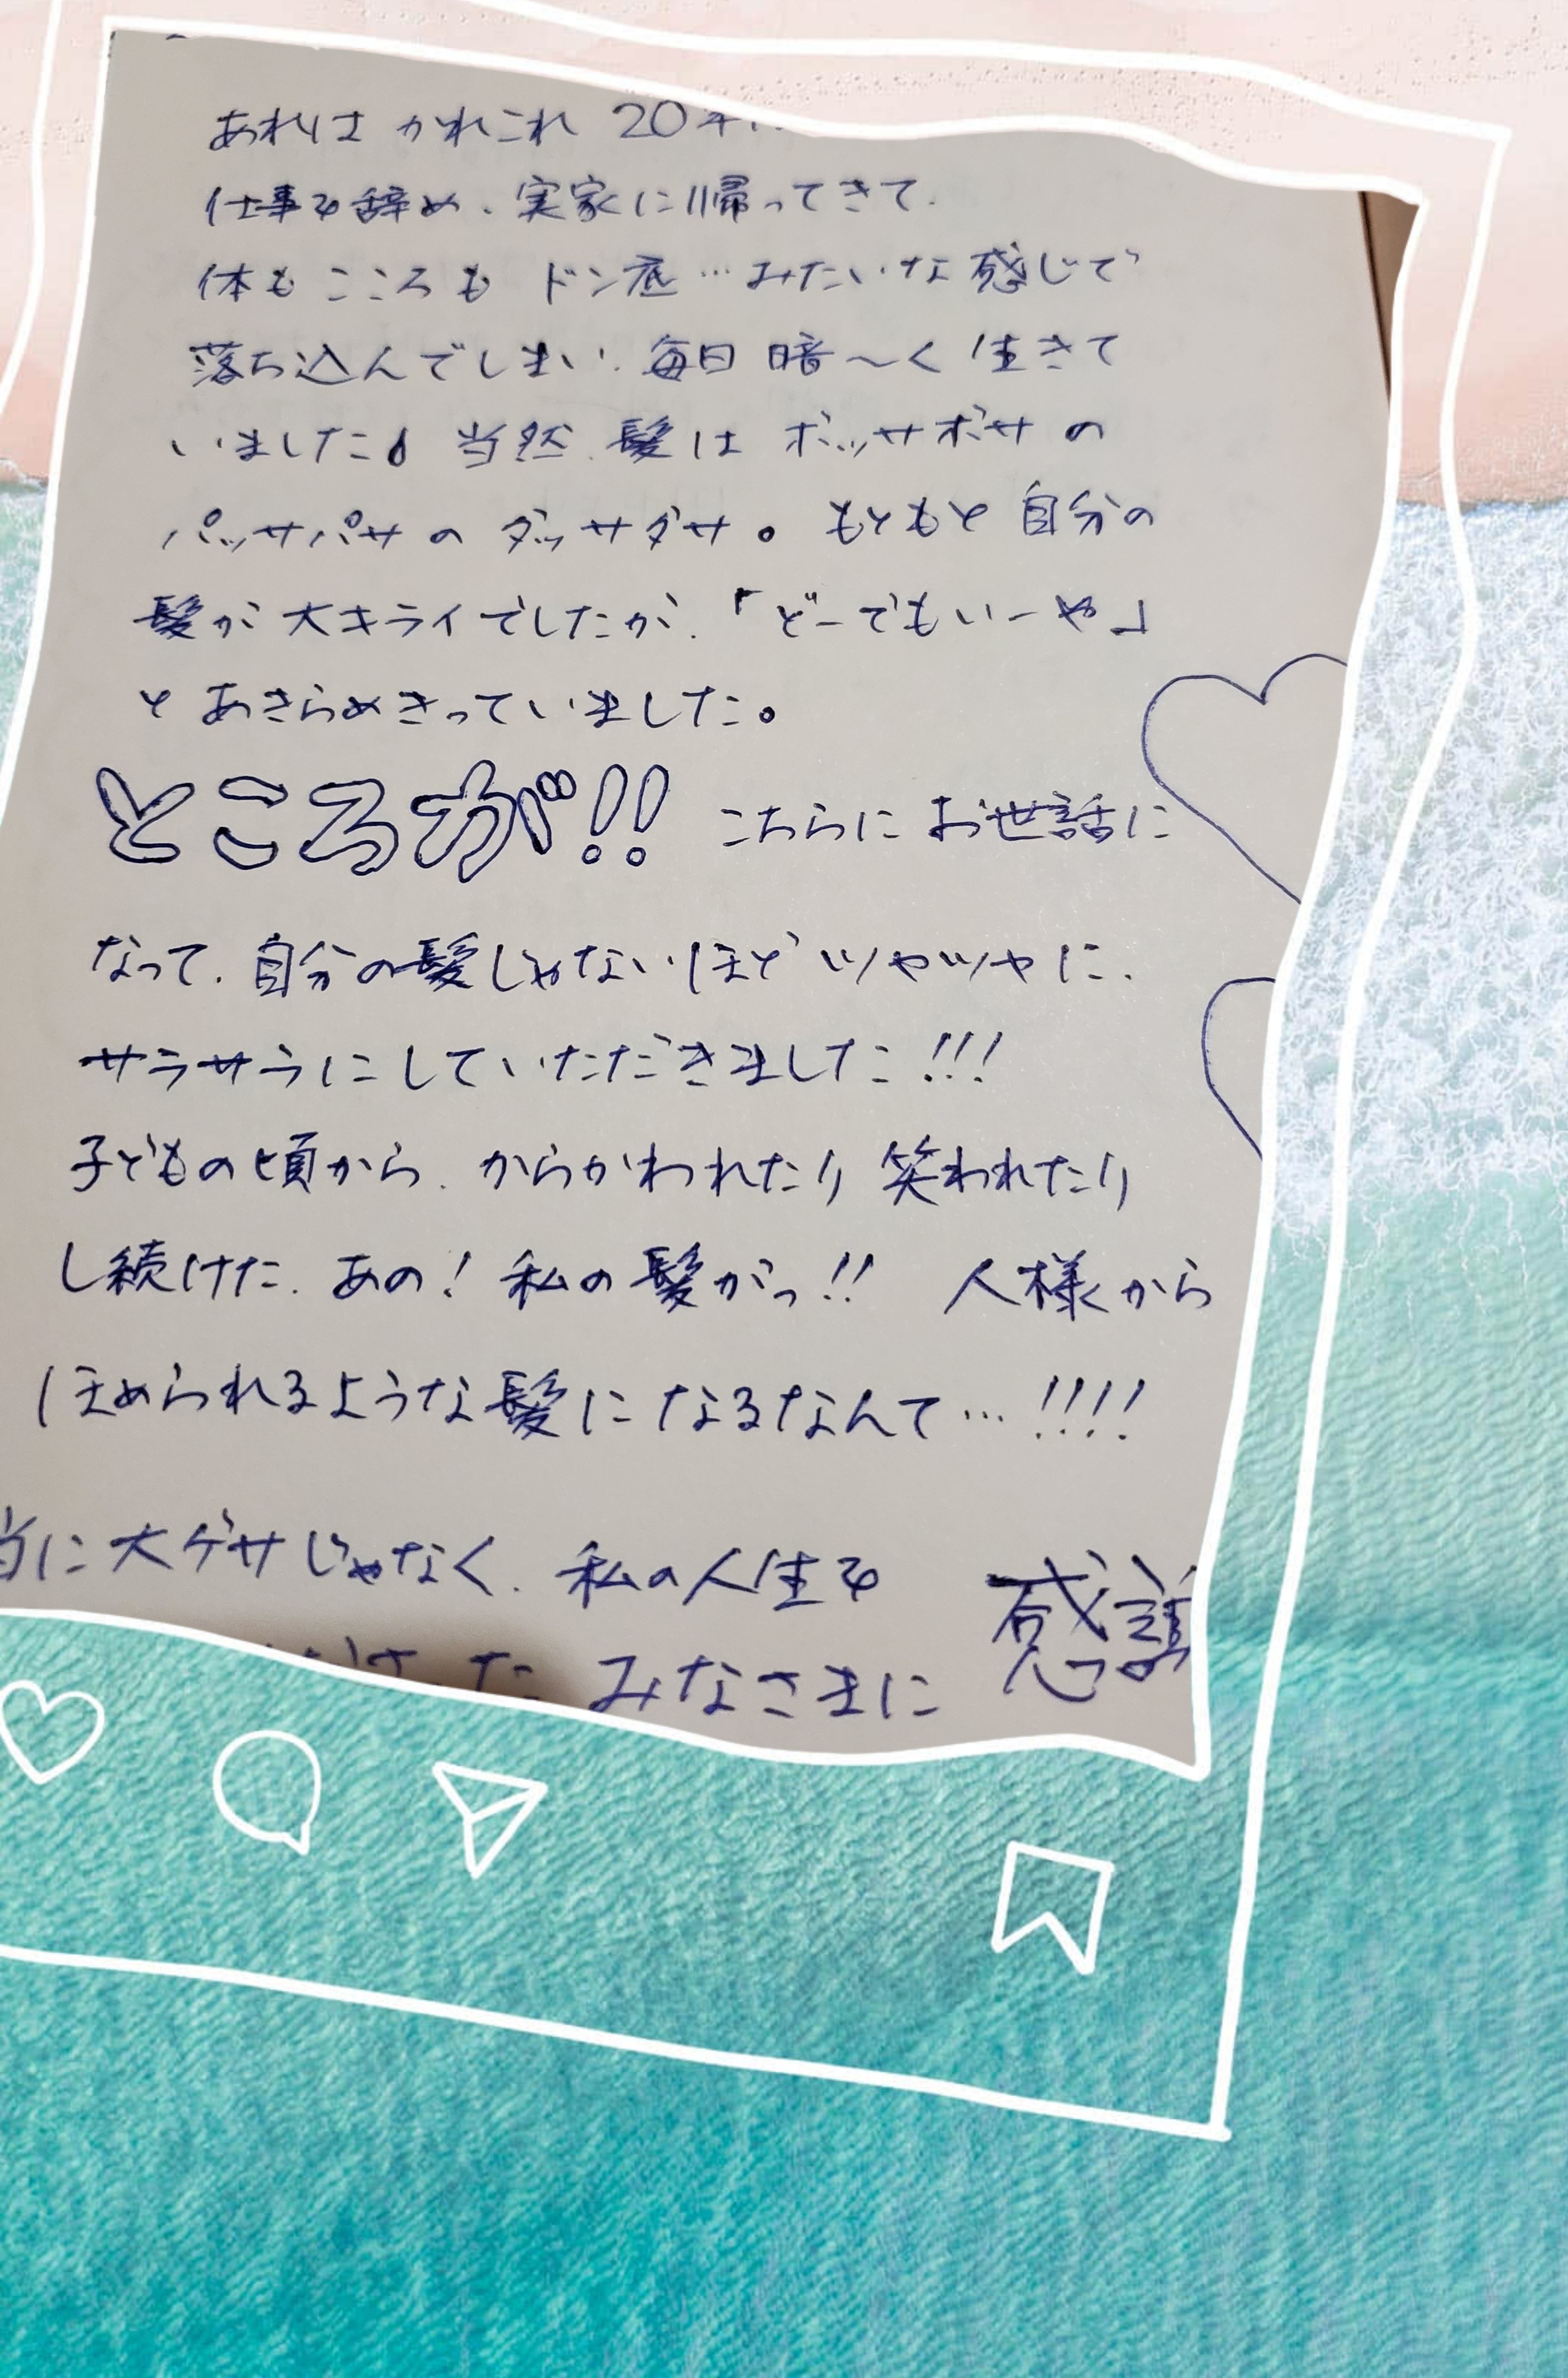 あれは かれこれ 20年
仕事を辞め、実家に帰ってきて、
体も こころも ドン底…みたいな感じで
落ち込んでしまい、毎日 暗〜く 生きて
いました。当然、髪は ボッサボサの
パッサパサの ダッサダサ。もともと 自分の
髪が 大キライでしたが、「どーでもいーや」
と あきらめきっていました。
ところが!! こちらに お世話に
なって、自分の髪じゃないほど ツヤツヤに、
サラサラにしていただきました!!!
子どもの頃から、からかわれたり 笑われたり
し続けた、あの! 私の髪がっ!! 人様から
ほめられるような髪に なるなんて…!!!!
当に 大ゲサじゃなく、私の人生を
た みなさまに 感謝